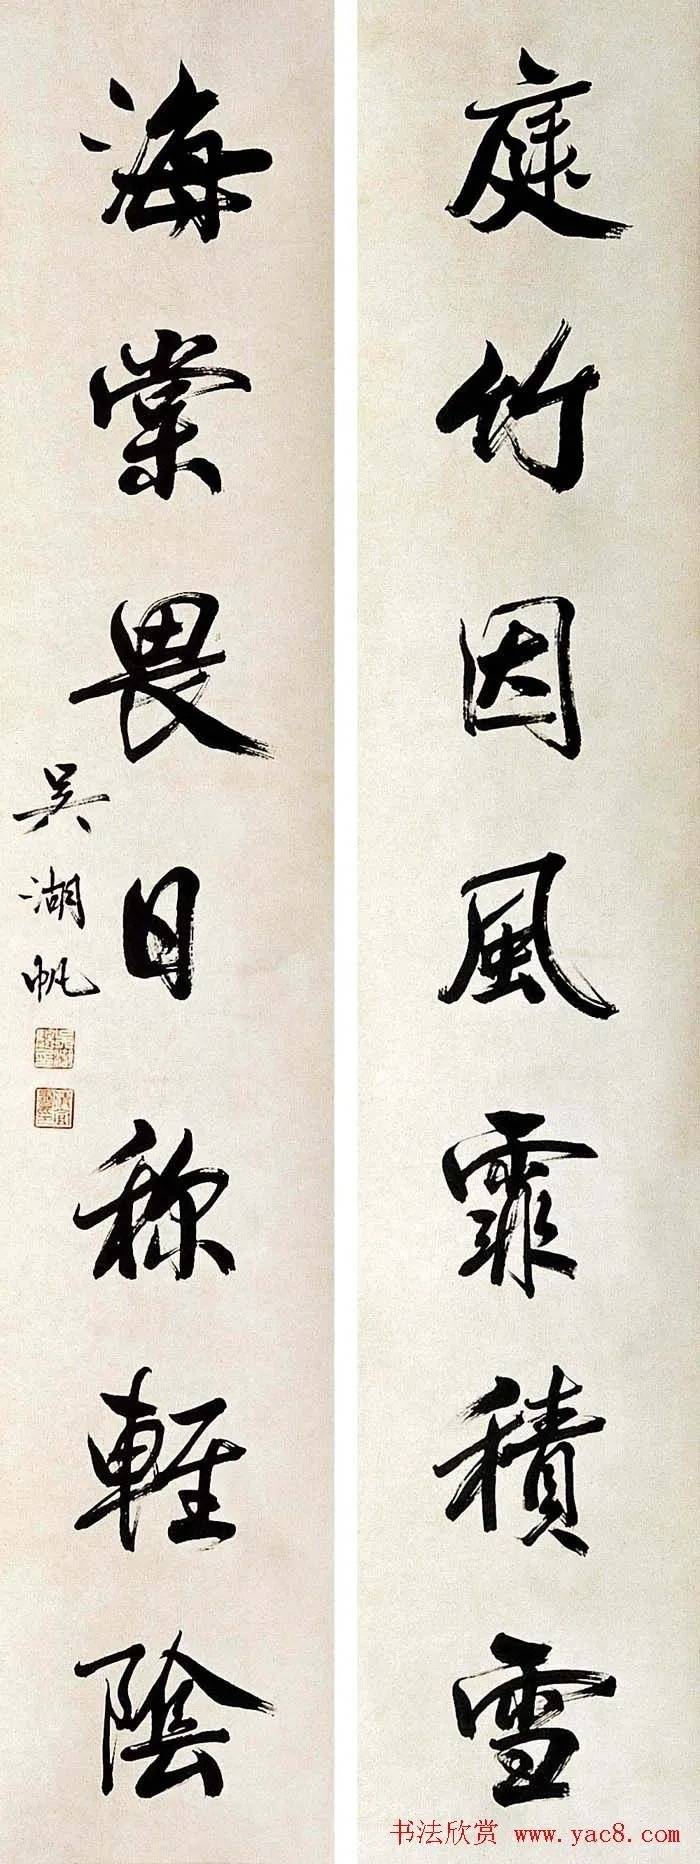 庭竹因風霏積雪
海棠畏日称輕陰
吴湖帆
书法欣赏 www.yac8.com